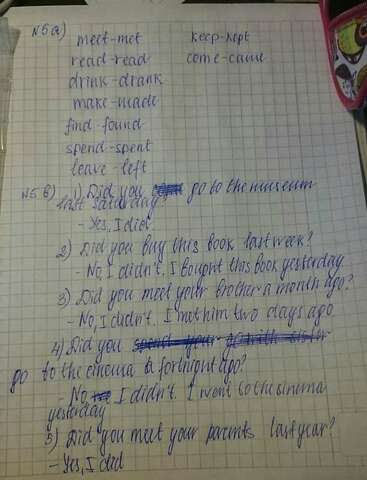 N5 a)
meet-met keep-kept
read-read come-came
drink-drank
make-made
find-found
spend-spent
leave-left
N5. b) 1) Did you go to the museum
last saturday
- Yes, I did.
2) Did you buy this book last week?
- No, I didn't. I bought this book yesterday
3) Did you meet your brother a month ago?
- No, I didn't. I met him two days ago
4) Did you
go to the cinema a fortnight ago?
- No, I didn't. I went to the sinema
yesterday
5) Did you meet your parents last year?
- Yes, I did